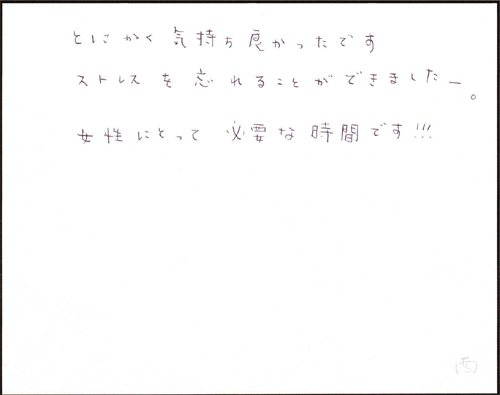 とにかく気持ち良かったです
ストレスを忘れることができましたー。
女性にとって必要な時間です!!!